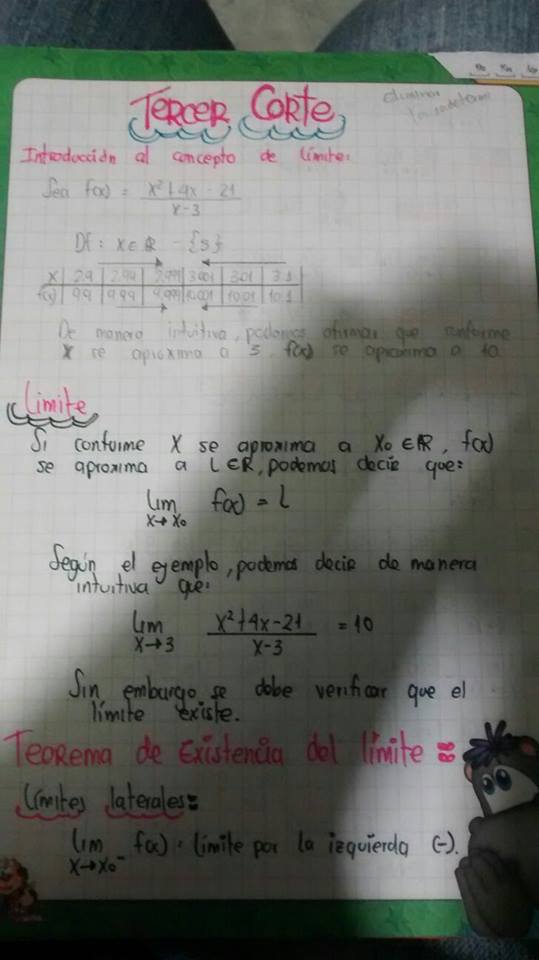 TERCER CORTE
eliminar
Introducción al concepto de límite:
Sea f(x) = x²+4x-21
x-3
Df: x∈ℝ - {3}
x | 2.9 | 2.99 | 2.999 | 3.001 | 3.01 | 3.1
f(x) | 9.9 | 9.99 | 9.999 | 10.001 | 10.01 | 10.1
De manera intuitiva, podemos afirmar que conforme
x se aproxima a 3, f(x) se aproxima a 10.
Límite
Si conforme x se aproxima a x₀ ∈ ℝ, f(x)
se aproxima a L ∈ ℝ, podemos decir que:
lim f(x) = L
x→x₀
Según el ejemplo, podemos decir de manera
intuitiva que:
lim x²+4x-21 = 10
x→3 x-3
Sin embargo se debe verificar que el
límite existe.
Teorema de existencia del límite:
Límites laterales:
lim f(x): límite por la izquierda (-).
x→x₀⁻